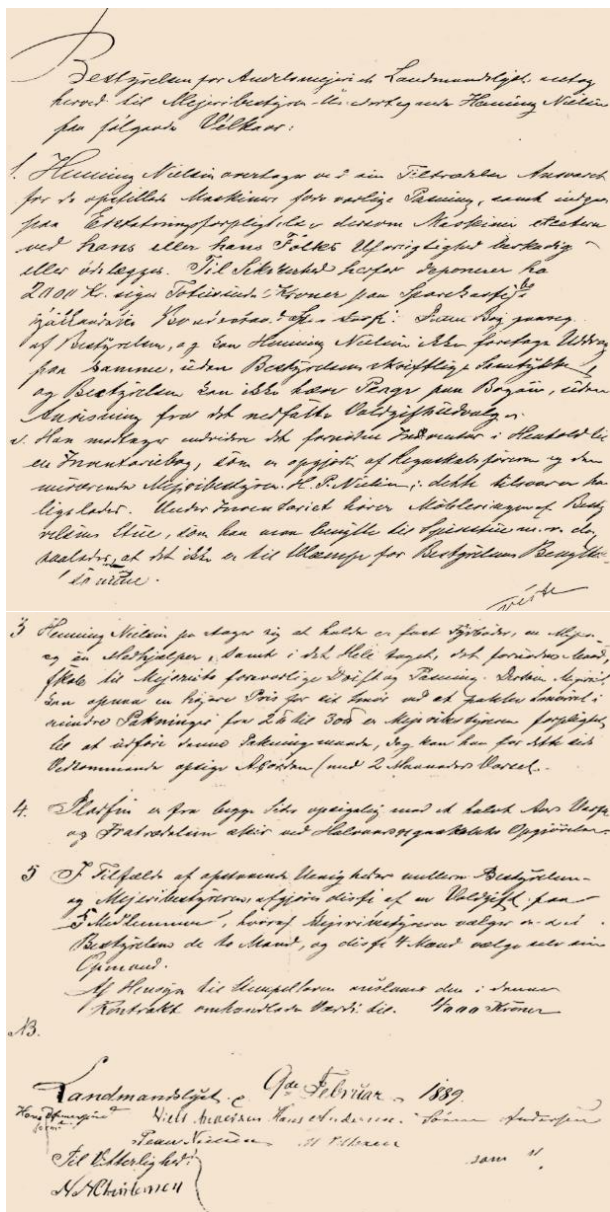 Bestyrelsen for Andelsmejeriet Landmandslyst antog
herved til Mejeribestyrer Henning Nielsen
paa følgende Vilkaar:
1. Henning Nielsen overtager ved sin Tiltrædelse Ansvaret
for de opstillede Maskiners forsvarlige Pasning, samt
paa Erstatningsforpligtelse dersom Maskinerne
ved hans eller hans Folks Uforsigtighed beskadig
eller ødelægges. Til Sikkerhed herfor deponerer ha
2000 Kr. siger Totusinde Kroner paa
Bog
af Bestyrelsen, og kan Henning Nielsen ikke foretage Uddrag
paa samme, uden Bestyrelsens skriftlige Samtykke,
og Bestyrelsen kan ikke hæve Penge paa Bogen, uden
Anvisning fra det nedsatte Voldgiftsudvalg.
2. Han modtager endvidere det fornødne Inventar i Henhold til
en Inventariebog, som er opgjort af Regnskabsføreren og den
nuværende Mejeribestyrer H. P. Nielsen, dette tilsvarer ha
ligeledes. Under Inventariet hører Møbleringen af Besty
relsens Stue, som han maa benytte til Spisestue m. v. dog
saaledes, at det ikke er til Ulæmpe for Bestyrelsens Benytt
3 Henning Nielsen paatager sig at holde en fast Fyrbøder, en Mejer
og en Medhjælper, samt i det Hele taget, det fornødne Mand
skab til Mejeriets forsvarlige Drift og Pasning. Dersom Mejeriet
kan opnaa en højere Pris for sit Smør ved at pakke Smørret i
mindre Pakninger fra 2 til 30 er Mejeribestyreren forpligtet
til at udføre denne Pakningsmaade, dog kan han for dette sit
Vedkommende opsige Akkorden med 2 Maaneders Varsel.
4. Pladsen er fra begge Sider opsigelig med et halvt Aars Varsel
og Fratrædelsen sker ved Halvaarsregnskabets Opgjørelse
5 I Tilfælde af opstaaende Uenigheder mellem Bestyrelsen
og Mejeribestyreren, afgjøres disse af en Voldgift paa
5 Medlemmer, hvoraf Mejeribestyreren vælger
Bestyrelsen de to Mand, og disse 4 Mænd vælge selv sin
Opmand.
Af Hensyn til Stempelloven anslaaes den i denne
Kontrakt omhandlede Værdi til 4000 Kroner
NB.
Landmandslyst d. 9de Februar 1889.
Niels Andersen Hans Andersen. Søren Andersen
Peder Nielsen
Til Vitterlighed:
N N Christensen